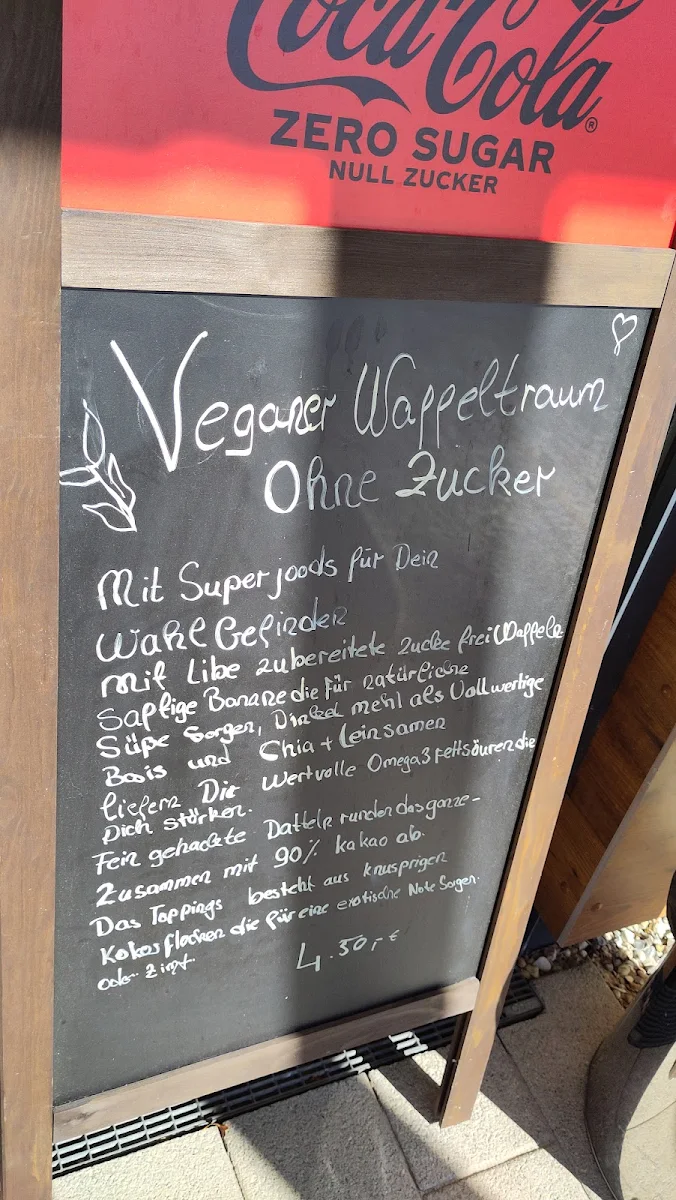 Coca-Cola®
ZERO SUGAR
NULL ZUCKER
Veganer Wappeltraum
Ohne Zucker
Mit Superfoods für Dein
Wahl Gefinden
mit Libe zubereitete zucke frei Wappeln
Saftige Banane die für natürliche
Süße Sorgen, Dinkel mehl als Vollwertige
Basis und Chia + Leinsamen
liefern Dir Wertvolle Omega3 Fettsäuren die
Dich stärken.
Fein gehackte Datteln runden das ganze-
Zusammen mit 90% kakao ab.
Das Toppings besteht aus knusprigen
Kokosflocken die für eine exotische Note Sorgen.
oder Zimt.
4.50,- €